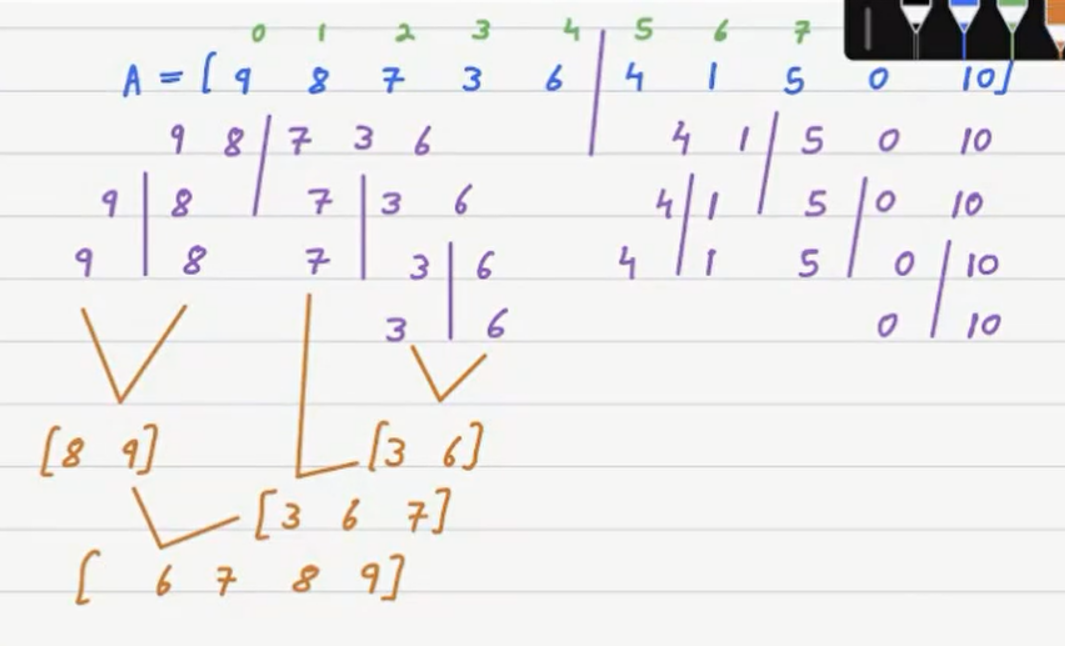 0 1 2 3 4 5 6 7
A = [ 9 8 7 3 6 4 1 5 0 10]
9 8 7 3 6 4 1 5 0 10
9 8 7 3 6 4 1 5 0 10
9 8 7 3 6 4 1 5 0 10
3 6 0 10
[8 9] [3 6]
[3 6 7]
[ 6 7 8 9]